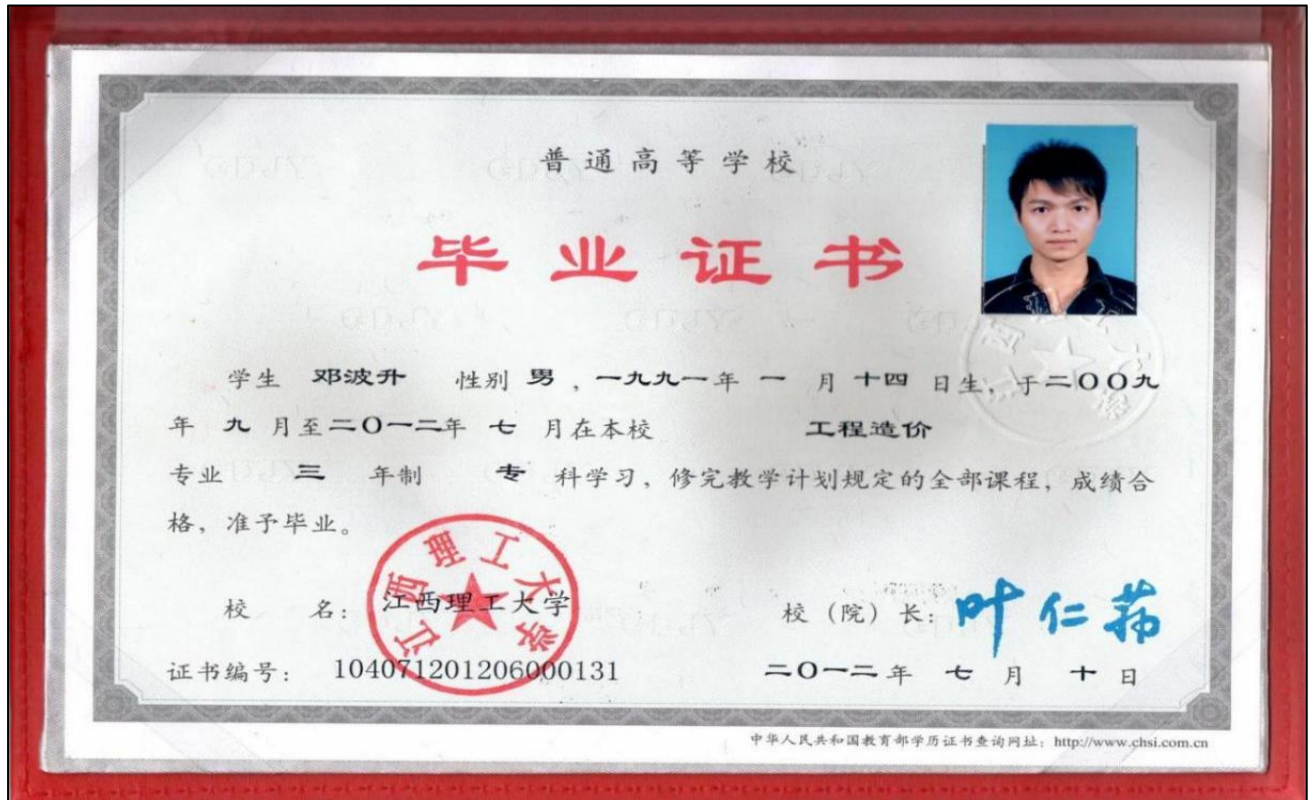 普通高等学校
毕业证书
学生 邓波升 性别 男 ，一九九一年 一 月 十四 日生，于二〇〇九
年 九 月至二〇一二年 七 月在本校 工程造价
专业 三 年制 专 科学习，修完教学计划规定的全部课程，成绩合
格，准予毕业。
江西理工大学
校 名： 江西理工大学 校（院）长：叶仁荪
证书编号： 104071201206000131 二〇一二年 七 月 十 日
中华人民共和国教育部学历证书查询网址：http://www.chsi.com.cn